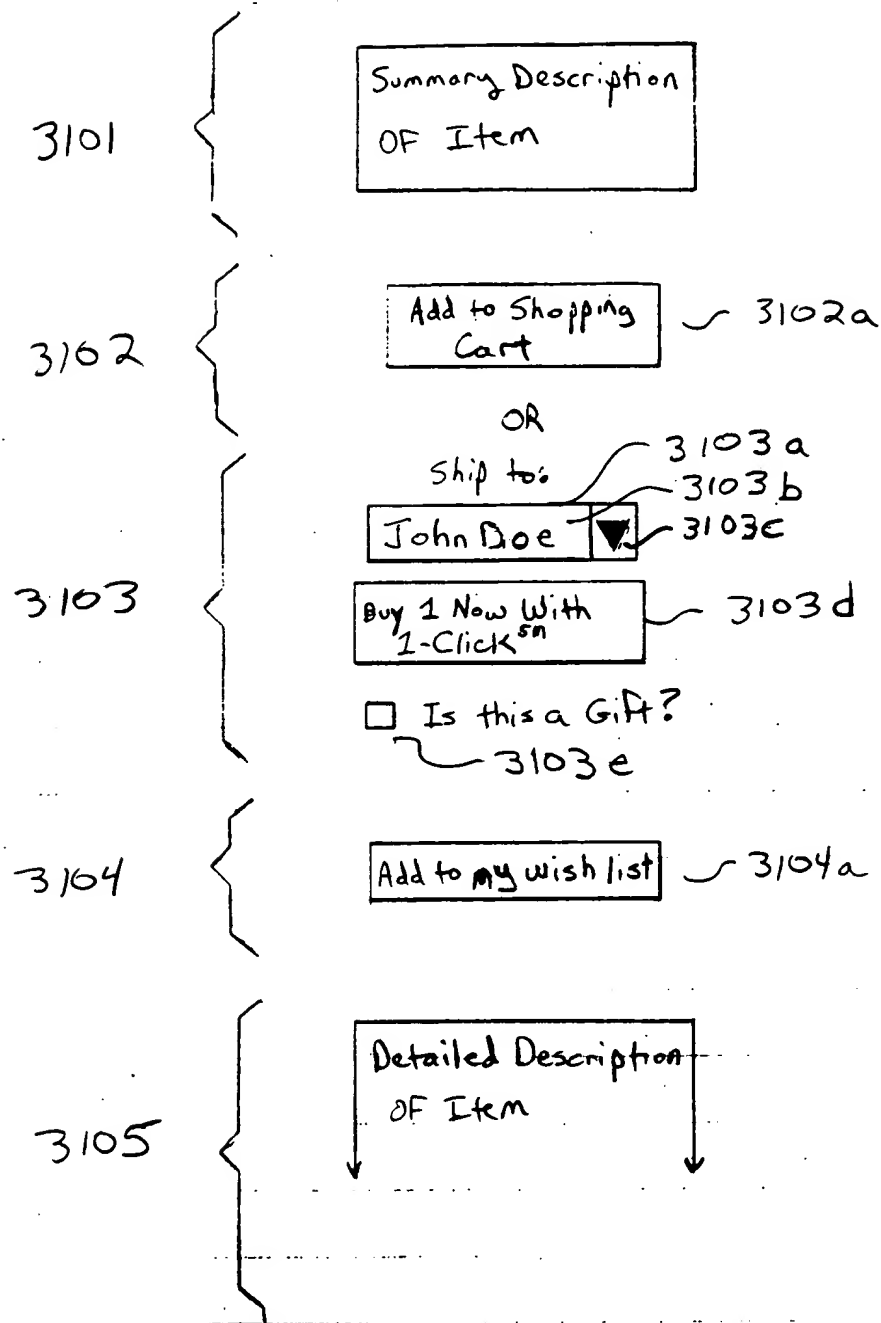 3101
Summary Description
OF Item
3102
Add to Shopping
Cart
3102a
OR
Ship to:
3103a
3103b
John Doe
3103c
3103
Buy 1 Now With
1-Click sm
3103d
Is this a Gift?
3103e
3104
Add to my wish list
3104a
3105
Detailed Description
OF Item